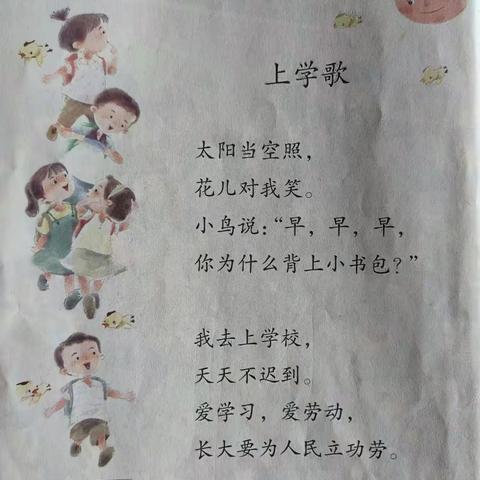 上学歌
太阳当空照，
花儿对我笑。
小鸟说：“早，早，早，
你为什么背上小书包？”
我去上学校，
天天不迟到。
爱学习，爱劳动，
长大要为人民立功劳。